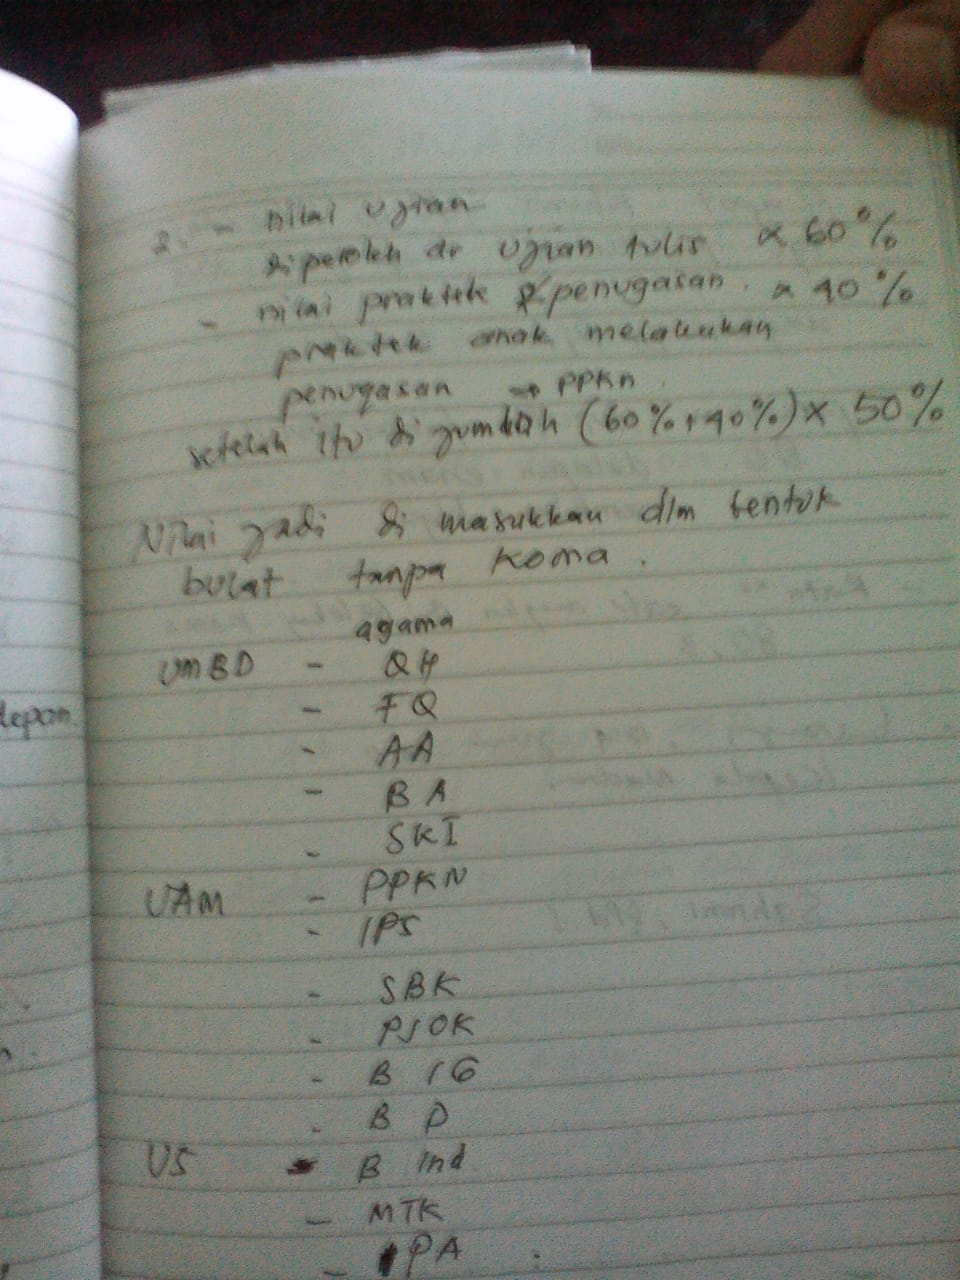 2. - nilai ujian
diperoleh dr ujian tulis x 60%
- nilai praktek / penugasan. x 40%
praktek anak melakukan
penugasan → PPKn.
setelah itu di jumblah (60%+40%) x 50%
Nilai jadi di masukkan dlm bentuk
bulat tanpa koma.
agama
UMBD - QH
- FQ
- AA
- BA
- SKI
UAM - PPKN
- IPS
- SBK
- PJOK
- B IG
- B D
US - B Ind
- MTK
- IPA
depan.